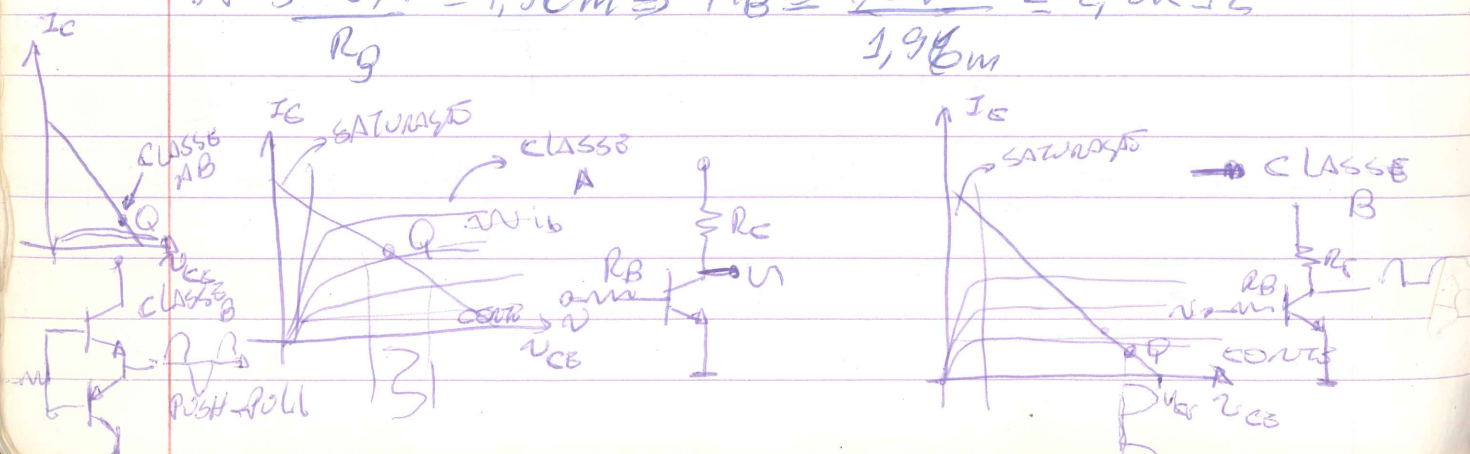 = 1,96m ⇒ RB =
RB
1,96m
IC
CLASSE
AB
Q
VCE
CLASSE
B
PUSH-PULL
IC
SATURAÇÃO
CLASSE
A
ib
Q
CORTE
VCE
RC
RB
IC
SATURAÇÃO
CLASSE
B
RC
RB
Q
CORTE
VCC VCE